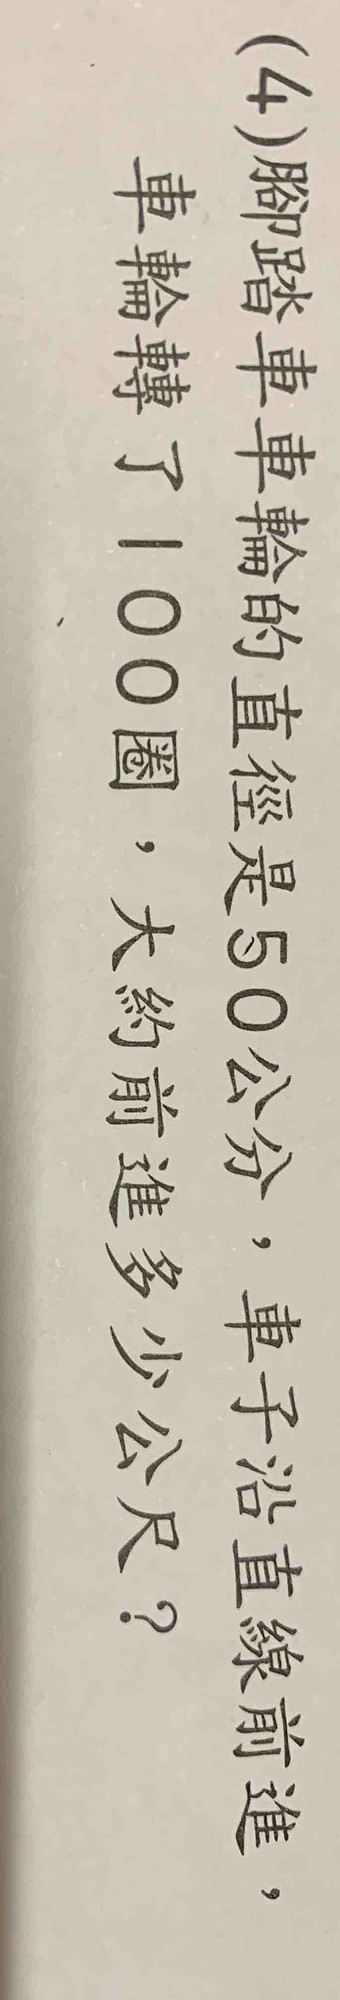 (4)腳踏車車輪的直徑是50公分，車子沿直線前進，
車輪轉了100圈，大約前進多少公尺？